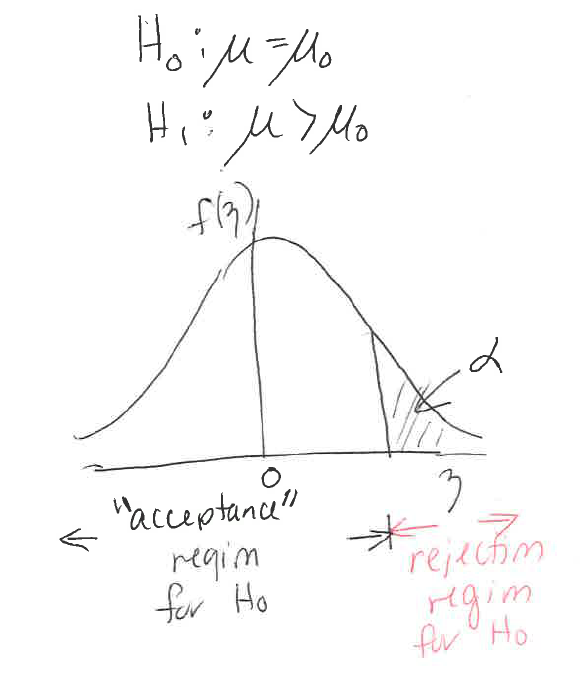 H₀: μ = μ₀
H₁: μ > μ₀
f(z)
α
0
z
"acceptance"
region
for H₀
rejection
region
for H₀